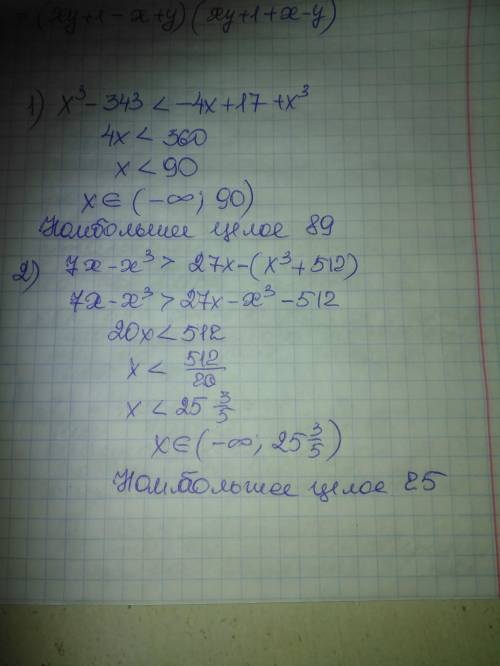 = (xy+1-x+y)(xy+1+x-y)
1) x³-343 < -4x+17+x³
4x < 360
x < 90
x∈(-∞; 90)
Наибольшее целое 89
2) 7x-x³ > 27x-(x³+512)
7x-x³ > 27x-x³-512
20x < 512
x < 512/20
x < 25 3/5
x∈(-∞; 25 3/5)
Наибольшее целое 25